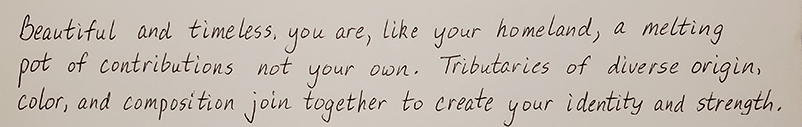 Beautiful and timeless, you are, like your homeland, a melting
pot of contributions not your own. Tributaries of diverse origin,
color, and composition join together to create your identity and strength.